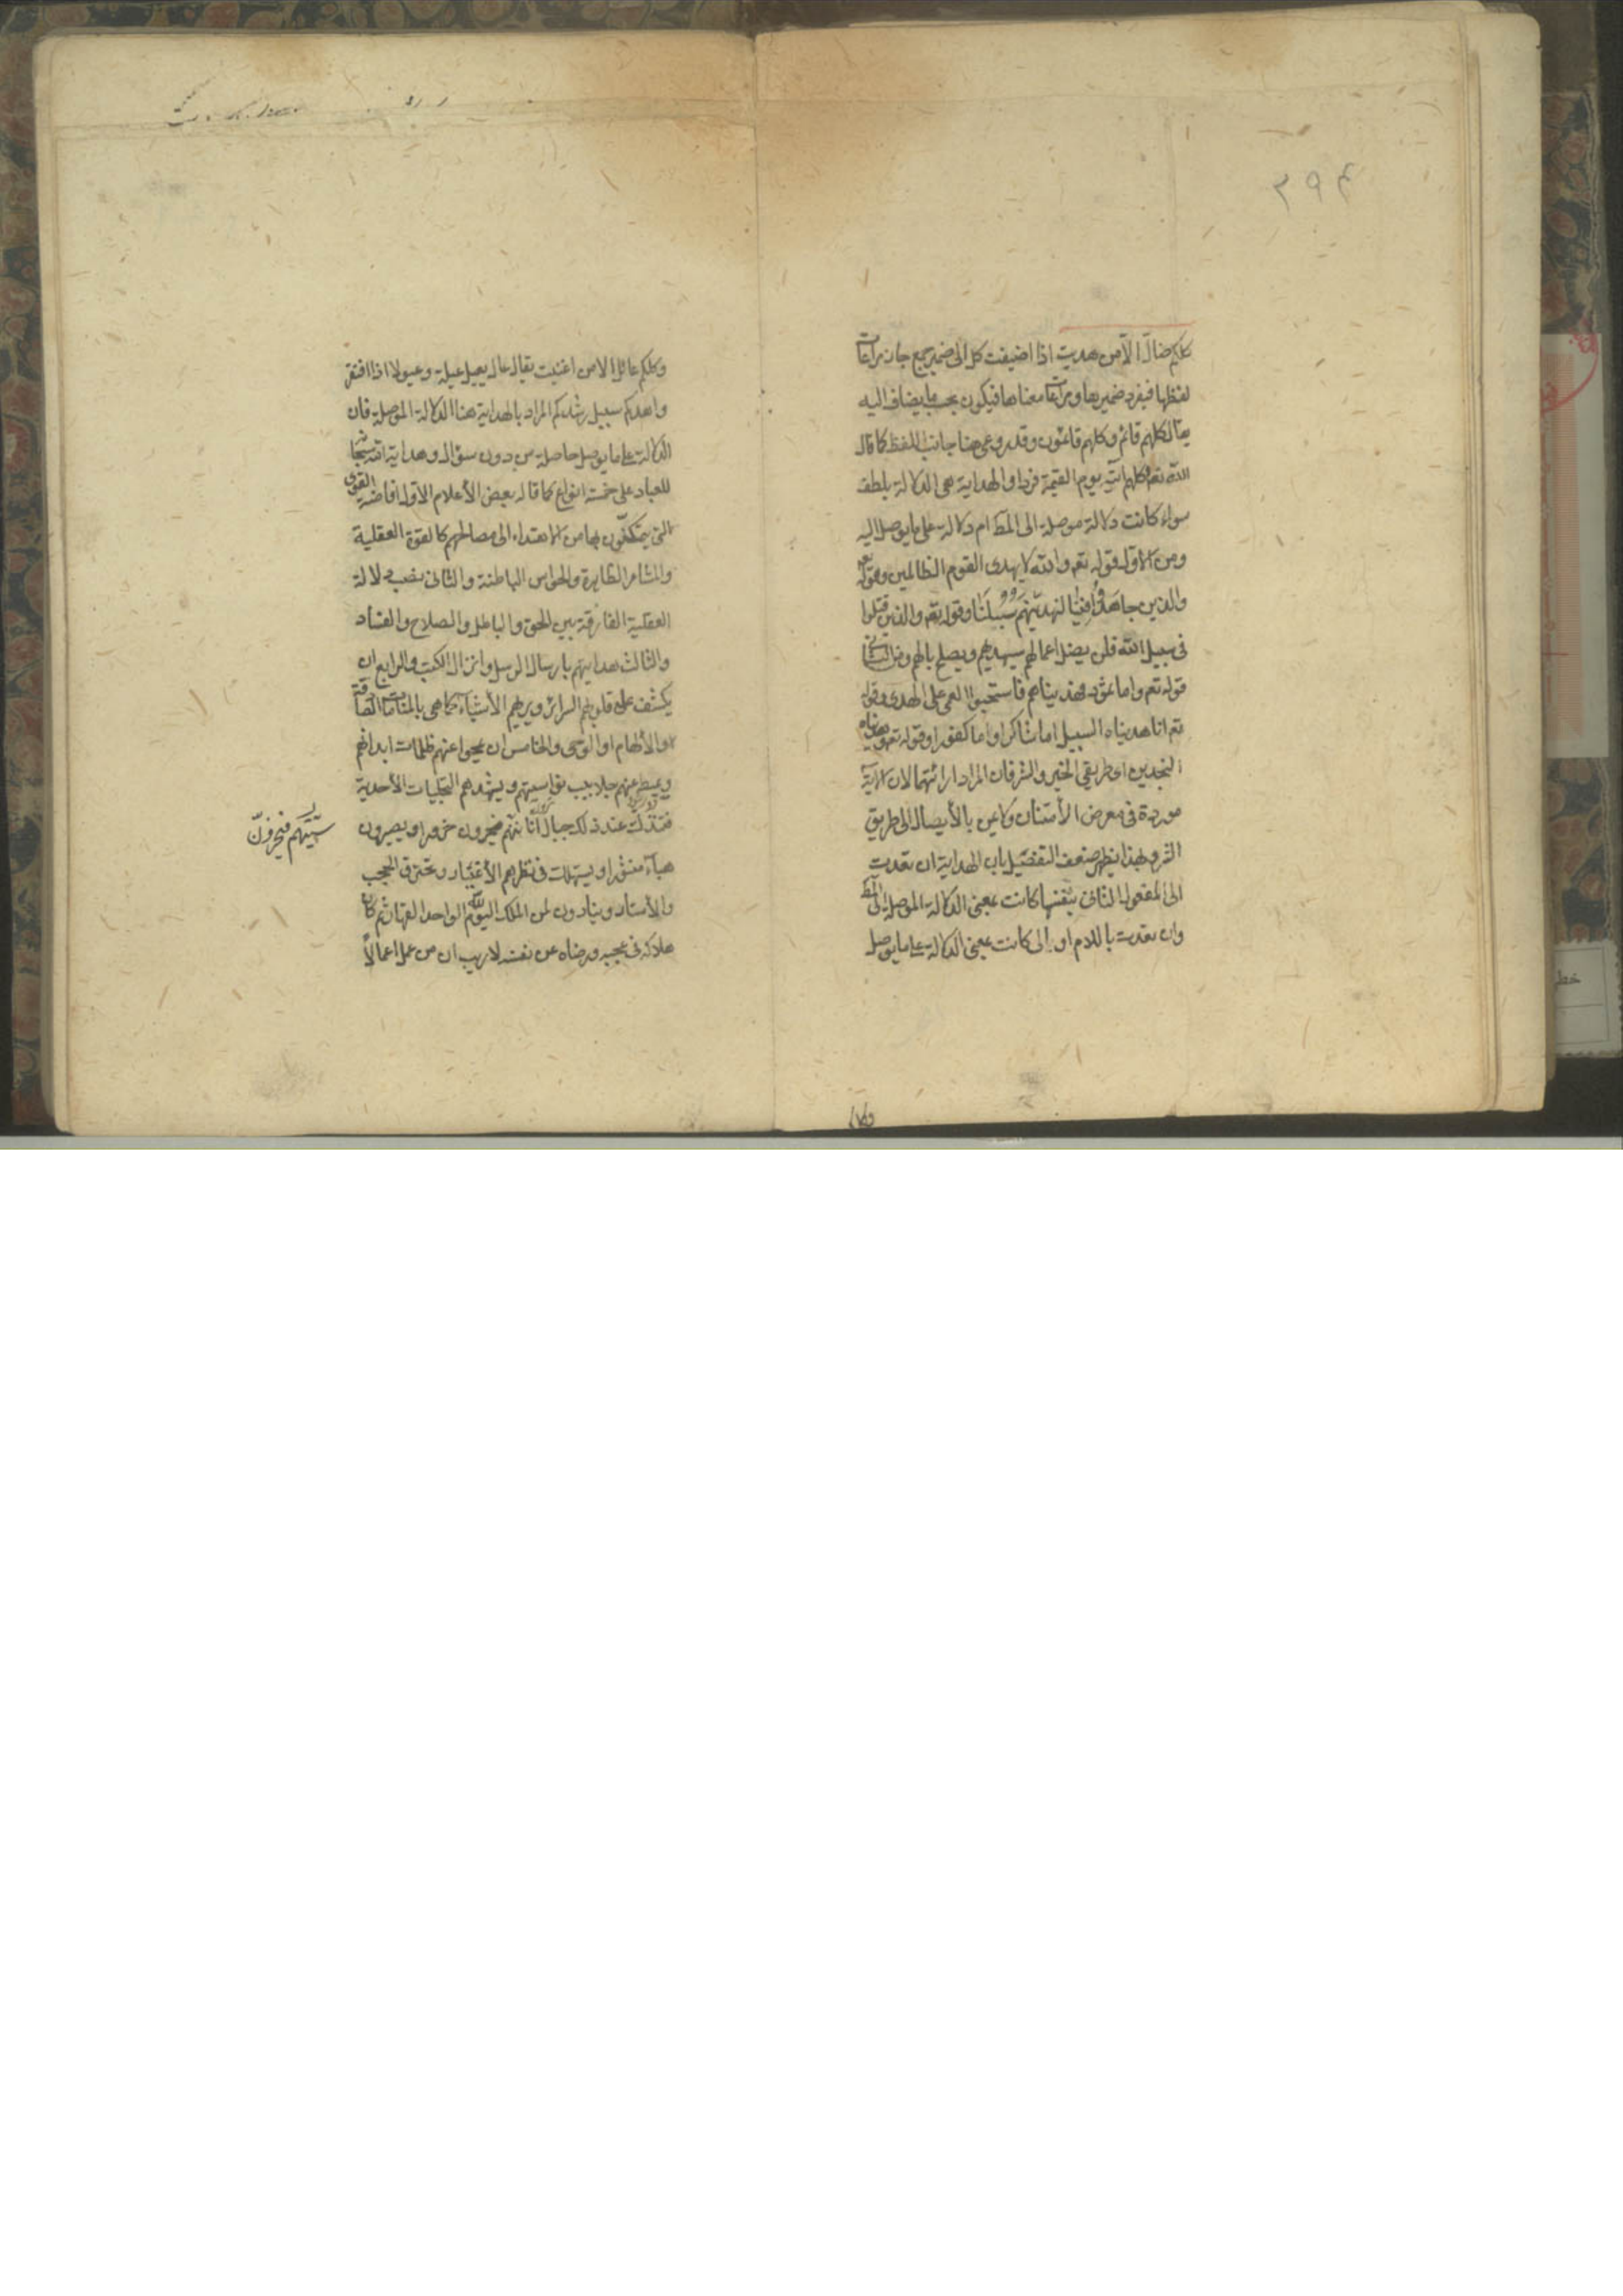 ٣٩٤
كلكم ضال الا من هديت اذا اضيفت كل الى ضمير جمع جاز مراعات
لفظها فيفرد ضميرها ومراعات معناها فيكون بحسب ما يضاف اليه
يقال كلهم قائم وكلهم قائمون وقد روعى هنا جانب اللفظ كما قال
الله تعم وكلهم آتيه يوم القيمة فردا والهداية هى الدلالة بلطف
سواء كانت دلالة موصلة الى المط ام دلالة على ما يوصل اليه
ومن الاول قوله تعم والله لا يهدى القوم الظالمين وقوله تعم
والذين جاهدوا فينا لنهدينهم سبلنا وقوله تعم والذين قتلوا
فى سبيل الله فلن يضل اعمالهم سيهديهم ويصلح بالهم ومن الثانى
قوله تعم واما ثمود فهديناهم فاستحبوا العمى على الهدى وقوله
تعم انا هديناه السبيل اما شاكرا واما كفورا وقوله تعم وهديناه
النجدين اى طريقى الخير والشر فان المراد ارائتهما لان الاية
موردة فى معرض الأمتنان ولا من بالأيصال الى طريق
الشر وبهذا يظهر ضعف التفصيل بان الهداية ان تعدت
الى المفعول الثانى بنفسها كانت بمعنى الدلالة الموصلة الى المط
وان تعدت باللام او الى كانت بمعنى الدلالة على ما يوصل
وكلكم عائل الا من اغنيت يقال عال يعيل عيلة وعيولا اذا افتقر
واهدكم سبيل رشدكم المراد بالهداية هنا الدلالة الموصلة فان
الدلالة على ما يوصل حاصلة من دون سؤال وهداية الله سبحانه
للعباد على خمسة انواع كما قاله بعض الأعلام الأول افاضة القوى
التى يتمكنون بها من الاهتداء الى مصالحهم كالقوة العقلية
والمشاعر الظاهرة والحواس الباطنة والثانى نصب دلالة
العقلية الفارقة بين الحق والباطل والصلاح والفساد
والثالث هدايتهم بارسال الرسل وانزال الكتب والرابع ان
يكشف على قلوبهم السرائر ويريهم الأشياء كما هى بالمنامات الصادقة
والألهام او الوحى والخامس ان يمحوا عنهم ظلمات ابدانهم
ويميط عنهم جلابيب نواسيتهم ويشهدهم التجليات الأحدية
فتندك عند ذلك جبال انانيتهم فيخرون خرورا ويصيرون
هباء منثورا ويستهلك فى نظرهم الأغيار وتحترق الحجب
والأستار وينادون لمن الملك اليوم لله الواحد القهار ثم كان
هلاكه فى عجبه ورضاه عن نفسه لا ريب ان من عمل اعمالا
فيخرون